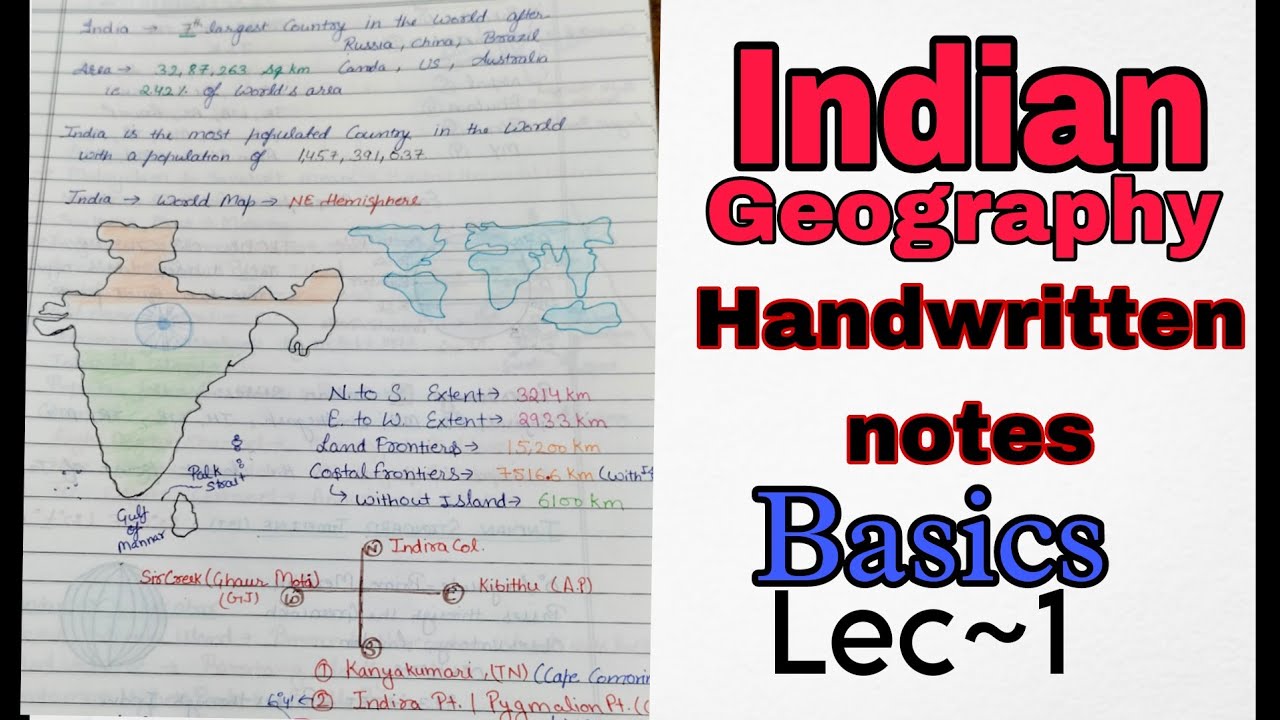 India → 7th largest Country in the world after
Russia, China, Brazil
Area → 32,87,263 sq km Canda, US, Australia
ie 2.42% of world's area
India is the most populated Country in the World
with a population of 1,457,391,637
India → World Map → NE Hemisphere
N. to S. Extent → 3214 km
E. to W. Extent → 2933 km
Land Frontiers → 15,200 km
Costal Frontiers → 7516.6 km (with
↳ without Island → 6100 km
Palk
Strait
Gulf
of
Mannar
N Indira Col.
Sir Creek (Ghaur Mota)
(GJ)
W
E Kibithu (A.P)
S
① Kanyakumari, (TN) (Cape Comorin
6°4' ← ② Indira Pt. / Pygmalion Pt. (
Indian
Geography
Handwritten
notes
Basics
Lec~1